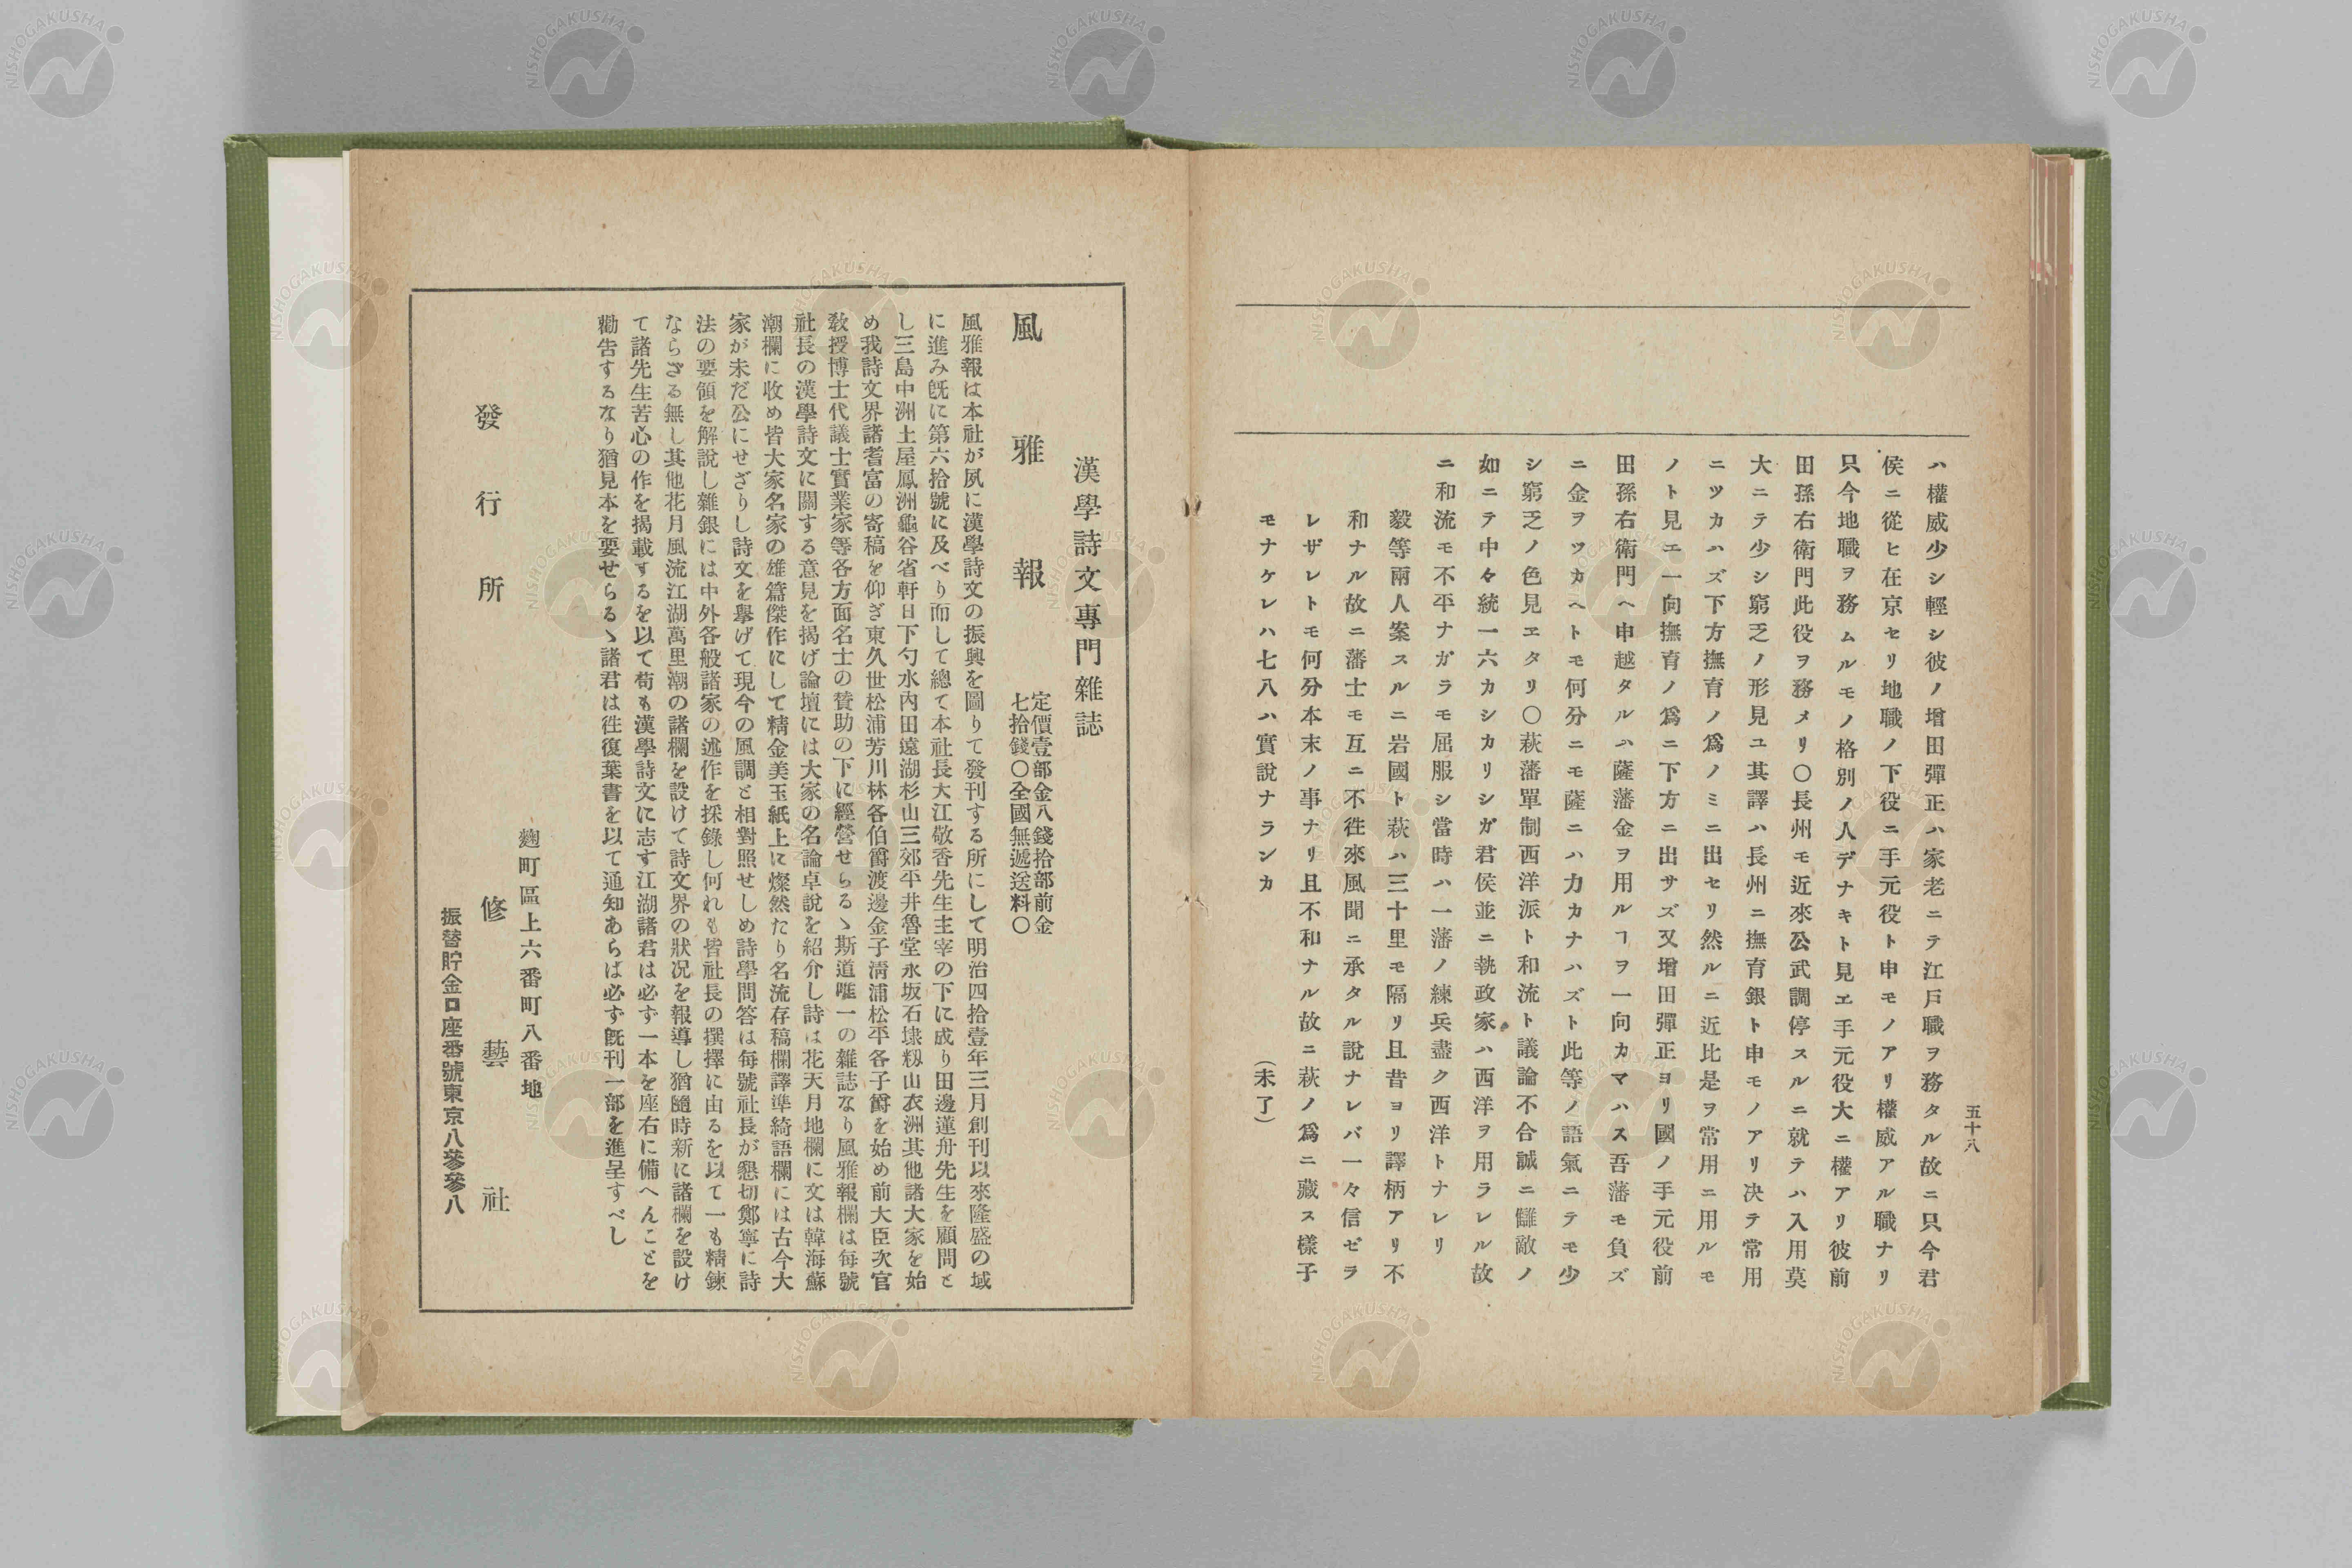 五十八
ハ權威少シ輕シ彼ノ增田彈正ハ家老ニテ江戸職ヲ務タル故ニ只今君
侯ニ從ヒ在京セリ地職ノ下役ニ手元役ト申モノアリ權威アル職ナリ
只今地職ヲ務ムルモノ格別ノ人デナキト見エ手元役大ニ權アリ彼前
田孫右衛門此役ヲ務メリ〇長州モ近來公武調停スルニ就テハ入用莫
大ニテ少シ窮乏ノ形見ユ其譯ハ長州ニ撫育銀ト申モノアリ決テ常用
ニツカハズ下方撫育ノ爲ノミニ出セリ然ルニ近比是ヲ常用ニ用ルモ
ノト見エ一向撫育ノ爲ニ下方ニ出サズ又增田彈正ヨリ國ノ手元役前
田孫右衛門ヘ申越タルハ薩藩金ヲ用ルヿヲ一向カマハス吾藩モ負ズ
ニ金ヲツカヘトモ何分ニモ薩ニハ力カナハズト此等ノ語氣ニテモ少
シ窮乏ノ色見エタリ〇萩藩單制西洋派ト和流ト議論不合誠ニ讎敵ノ
如ニテ中々統一六カシカリシガ君侯並ニ執政家ハ西洋ヲ用ラレル故
ニ和流モ不平ナガラモ屈服シ當時ハ一藩ノ練兵盡ク西洋トナレリ
毅等兩人案スルニ岩國ト萩ハ三十里モ隔リ且昔ヨリ譯柄アリ不
和ナル故ニ藩士モ互ニ不徃來風聞ニ承タル說ナレバ一々信ゼラ
レザレトモ何分本末ノ事ナリ且不和ナル故ニ萩ノ爲ニ藏ス樣子
モナケレハ七八ハ實說ナランカ
（未了）
漢學詩文專門雜誌
風雅報
定價壹部金八錢拾部前金
七拾錢〇全國無遞送料〇
風雅報は本社が夙に漢學詩文の振興を圖りて發刊する所にして明治四拾壹年三月創刊以來隆盛の域
に進み旣に第六拾號に及べり而して總て本社長大江敬香先生主宰の下に成り田邊蓮舟先生を顧問と
し三島中洲土屋鳳洲龜谷省軒日下勺水內田遠湖杉山三郊平井魯堂永坂石埭籾山衣洲其他諸大家を始
め我詩文界諸耆宿の寄稿を仰ぎ東久世松浦芳川林各伯爵渡邊金子淸浦松平各子爵を始め前大臣次官
敎授博士代議士實業家等各方面名士の賛助の下に經營せらるゝ斯道唯一の雜誌なり風雅報欄は每號
社長の漢學詩文に關する意見を揭げ論壇には大家の名論卓說を紹介し詩は花天月地欄に文は韓海蘇
潮欄に收め皆大家名家の雄篇傑作にして精金美玉紙上に燦然たり名流存稿欄譯準綺語欄には古今大
家が未だ公にせざりし詩文を擧げて現今の風調と相對照せしめ詩學問答は每號社長が懇切鄭寧に詩
法の要領を解說し雜銀には中外各般諸家の述作を採錄し何れも皆社長の撰擇に由るを以て一も精鍊
ならざる無し其他花月風流江湖萬里潮の諸欄を設けて詩文界の狀況を報導し猶隨時新に諸欄を設け
て諸先生苦心の作を揭載するを以て苟も漢學詩文に志す江湖諸君は必ず一本を座右に備へんことを
勸告するなり猶見本を要せらるゝ諸君は徃復葉書を以て通知あらば必ず旣刊一部を進呈すべし
麴町區上六番町八番地
發行所 修藝社
振替貯金口座番號東京八參參八